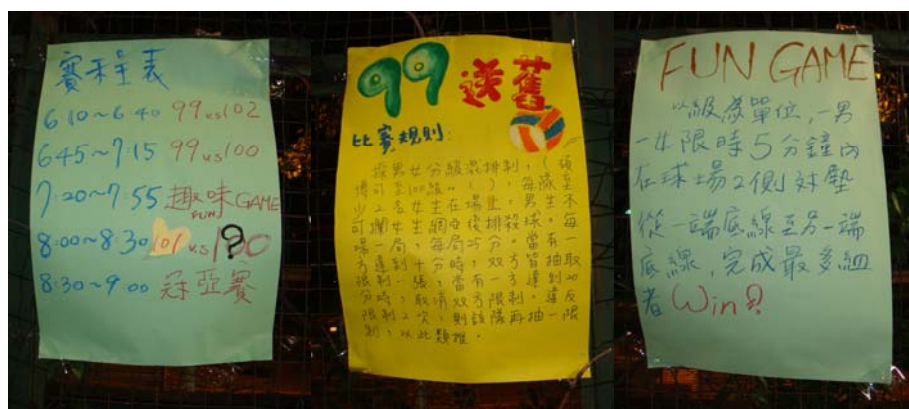 賽程表
6:10~6:40 99 vs 102
6:45~7:15 99 vs 100
7:20~7:55 趣味 FUN GAME
8:00~8:30 101 vs ?
8:30~9:00 冠亞賽
99 送舊
比賽規則:
採男女分級混排制,(
100級。( ),每隊至
少2名女生在場上,男生不
可攔女生網或後排殺球。每
場一局,每局25分。當有一
方達到十分時,雙方皆抽取
限制一張,當有一方達到20
分時,取消雙方限制。違反
限制2次,則該隊再抽一限
制,以此類推。
FUN GAME
以級為單位,一男
一女限時5分鐘內
在球場2側對墊
從一端底線至另一端
底線,完成最多組
者Win!